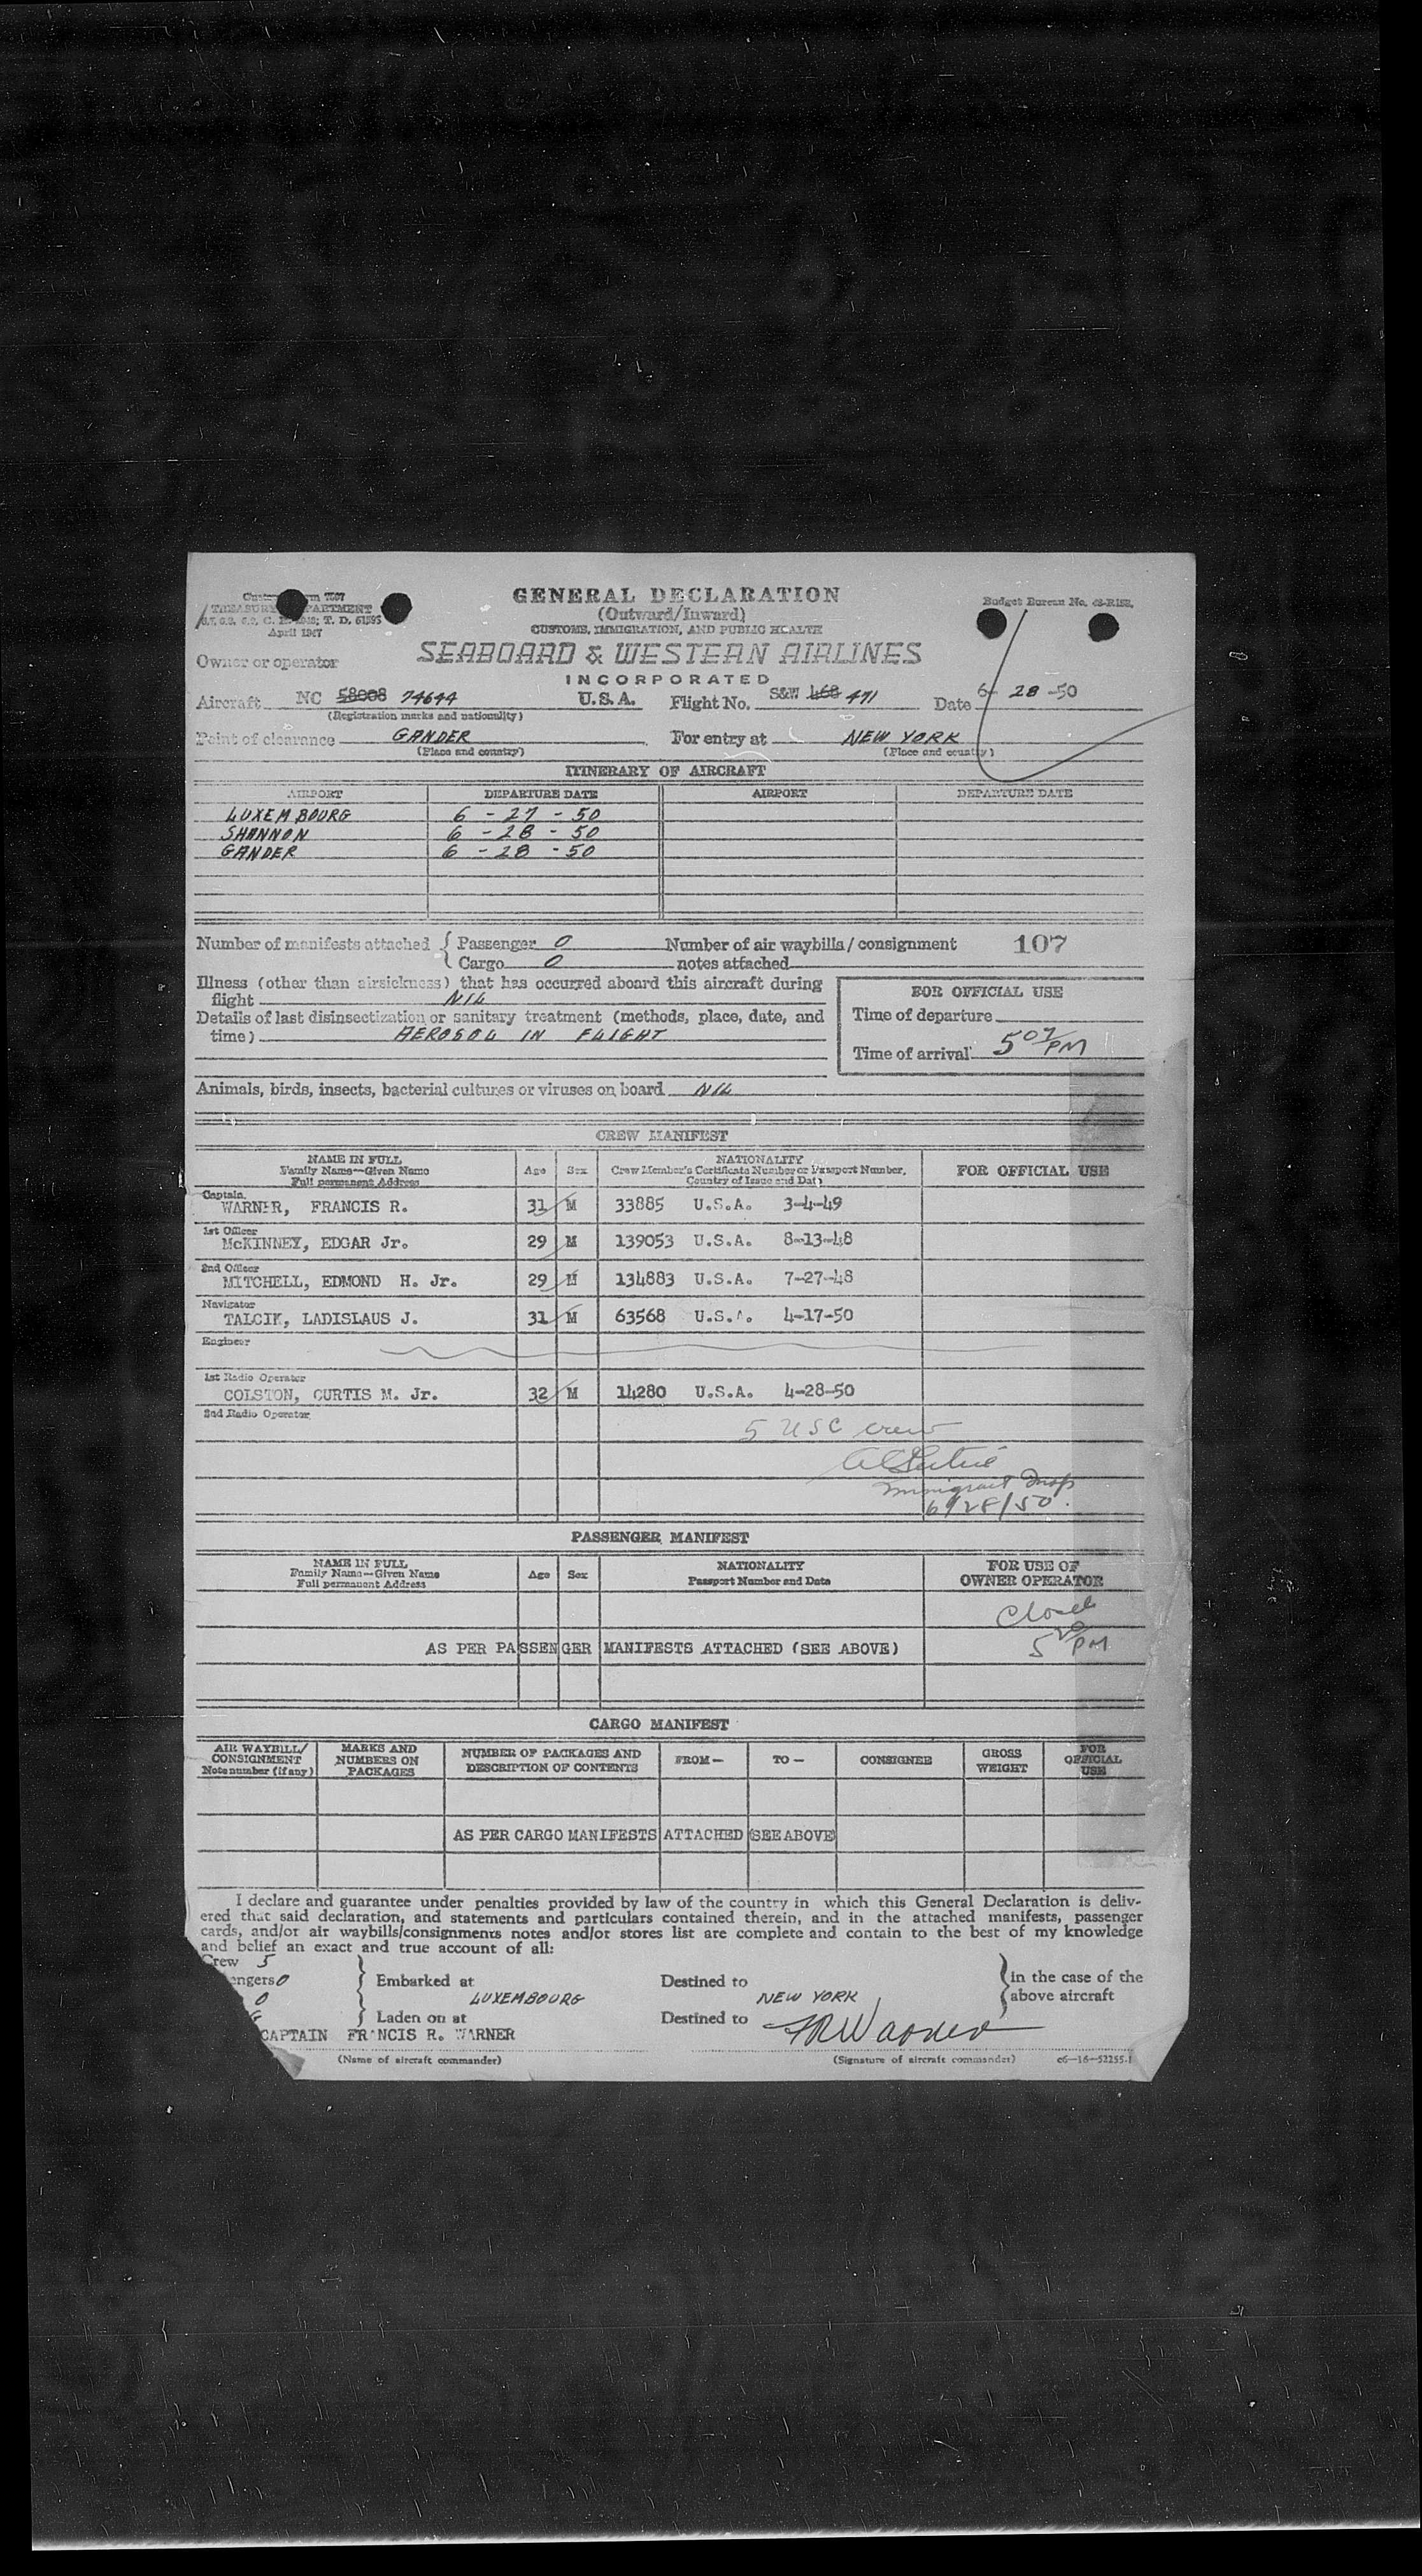 Customs Form 7507
TREASURY DEPARTMENT
April 1947
GENERAL DECLARATION
(Outward/Inward)
CUSTOMS, IMMIGRATION, AND PUBLIC HEALTH
Budget Bureau No.
Owner or operator SEABOARD & WESTERN AIRLINES
INCORPORATED
Aircraft NC 58008 74644 U.S.A. Flight No. S&W 468 471 Date 6- 28 -50
(Registration marks and nationality)
Point of clearance GANDER For entry at NEW YORK
(Place and country) (Place and country)
ITINERARY OF AIRCRAFT
AIRPORT DEPARTURE DATE AIRPORT DEPARTURE DATE
LUXEMBOURG 6 - 27 - 50
SHANNON 6 - 28 - 50
GANDER 6 - 28 - 50
Number of manifests attached { Passenger 0 Number of air waybills / consignment 107
Cargo 0 notes attached
Illness (other than airsickness) that has occurred aboard this aircraft during
flight NIL
Details of last disinsectization or sanitary treatment (methods, place, date, and
time) AEROSOL IN FLIGHT
FOR OFFICIAL USE
Time of departure
Time of arrival 5 07 PM
Animals, birds, insects, bacterial cultures or viruses on board NIL
CREW MANIFEST
NAME IN FULL
Family Name—Given Name
Full permanent Address
Age Sex
NATIONALITY
Crew Member's Certificate Number or Passport Number,
Country of Issue and Date
FOR OFFICIAL USE
Captain
WARNER, FRANCIS R. 31 M 33885 U.S.A. 3-4-49
1st Officer
McKINNEY, EDGAR Jr. 29 M 139053 U.S.A. 8-13-48
2nd Officer
MITCHELL, EDMOND H. Jr. 29 M 134883 U.S.A. 7-27-48
Navigator
TALCIK, LADISLAUS J. 31 M 63568 U.S.A. 4-17-50
Engineer
1st Radio Operator
COLSTON, CURTIS M. Jr. 32 M 14280 U.S.A. 4-28-50
2nd Radio Operator
5 USC crew
Immigrant Insp
6/28/50.
PASSENGER MANIFEST
NAME IN FULL
Family Name—Given Name
Full permanent Address
Age Sex
NATIONALITY
Passport Number and Date
FOR USE OF
OWNER OPERATOR
Closed
5 20 PM
AS PER PASSENGER MANIFESTS ATTACHED (SEE ABOVE)
CARGO MANIFEST
AIR WAYBILL/
CONSIGNMENT
Note number (if any)
MARKS AND
NUMBERS ON
PACKAGES
NUMBER OF PACKAGES AND
DESCRIPTION OF CONTENTS
FROM— TO— CONSIGNEE
GROSS
WEIGHT
FOR
OFFICIAL
USE
AS PER CARGO MANIFESTS ATTACHED (SEE ABOVE)
I declare and guarantee under penalties provided by law of the country in which this General Declaration is deliv-
ered that said declaration, and statements and particulars contained therein, and in the attached manifests, passenger
cards, and/or air waybills/consignments notes and/or stores list are complete and contain to the best of my knowledge
and belief an exact and true account of all:
Crew 5
engers 0 Embarked at Destined to in the case of the
0 LUXEMBOURG NEW YORK above aircraft
Laden on at Destined to
CAPTAIN FRANCIS R. WARNER FRWarner
(Name of aircraft commander) (Signature of aircraft commander) c6—16—52255-1